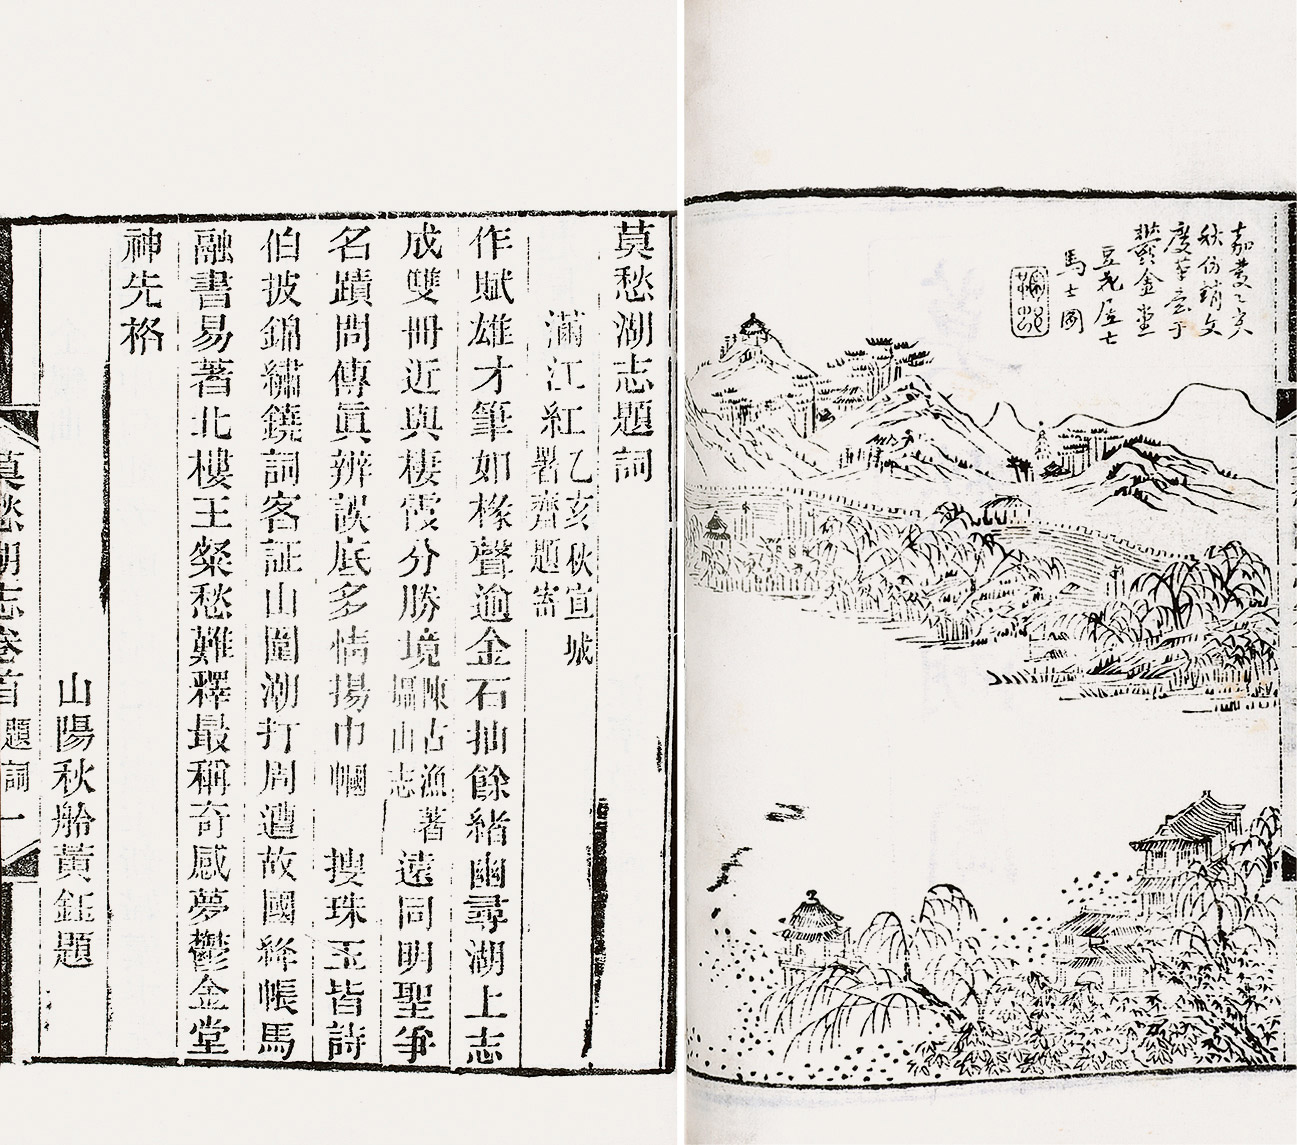 嘉慶乙亥
秋仿
文
度華于
鬱金堂
馬士圖
莫愁湖志題詞
滿江紅
乙亥秋宣城
署齋題寄
作賦雄才筆如椽聲逾金石抽餘緒幽尋湖上志
成雙冊近與棲霞分勝境
陳古漁著
攝山志
遠同明聖爭
名蹟問傳眞辨誤底多情揚巾幗　搜珠玉皆詩
伯披錦繡鐃詞客証山圍潮打周遭故國絳帳馬
融書易著北樓王粲愁難釋最稱奇感夢鬱金堂
神先格
山陽秋舲黃鈺題
莫愁湖志卷首
題詞
一